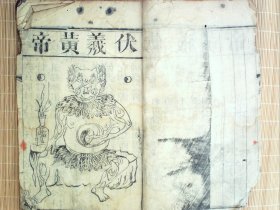 伏羲黃帝